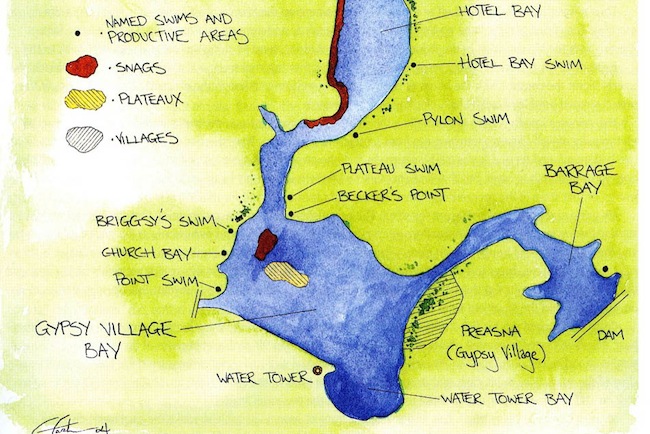 • NAMED SWIMS AND
PRODUCTIVE AREAS
· SNAGS
· PLATEAUX
· VILLAGES
HOTEL BAY
HOTEL BAY SWIM
PYLON SWIM
PLATEAU SWIM
BECKER'S POINT
BARRAGE
BAY
BRIGGSY'S SWIM
CHURCH BAY
POINT SWIM
GYPSY VILLAGE
BAY
PREASNA
(GYPSY VILLAGE)
DAM
WATER TOWER
WATER TOWER BAY
04